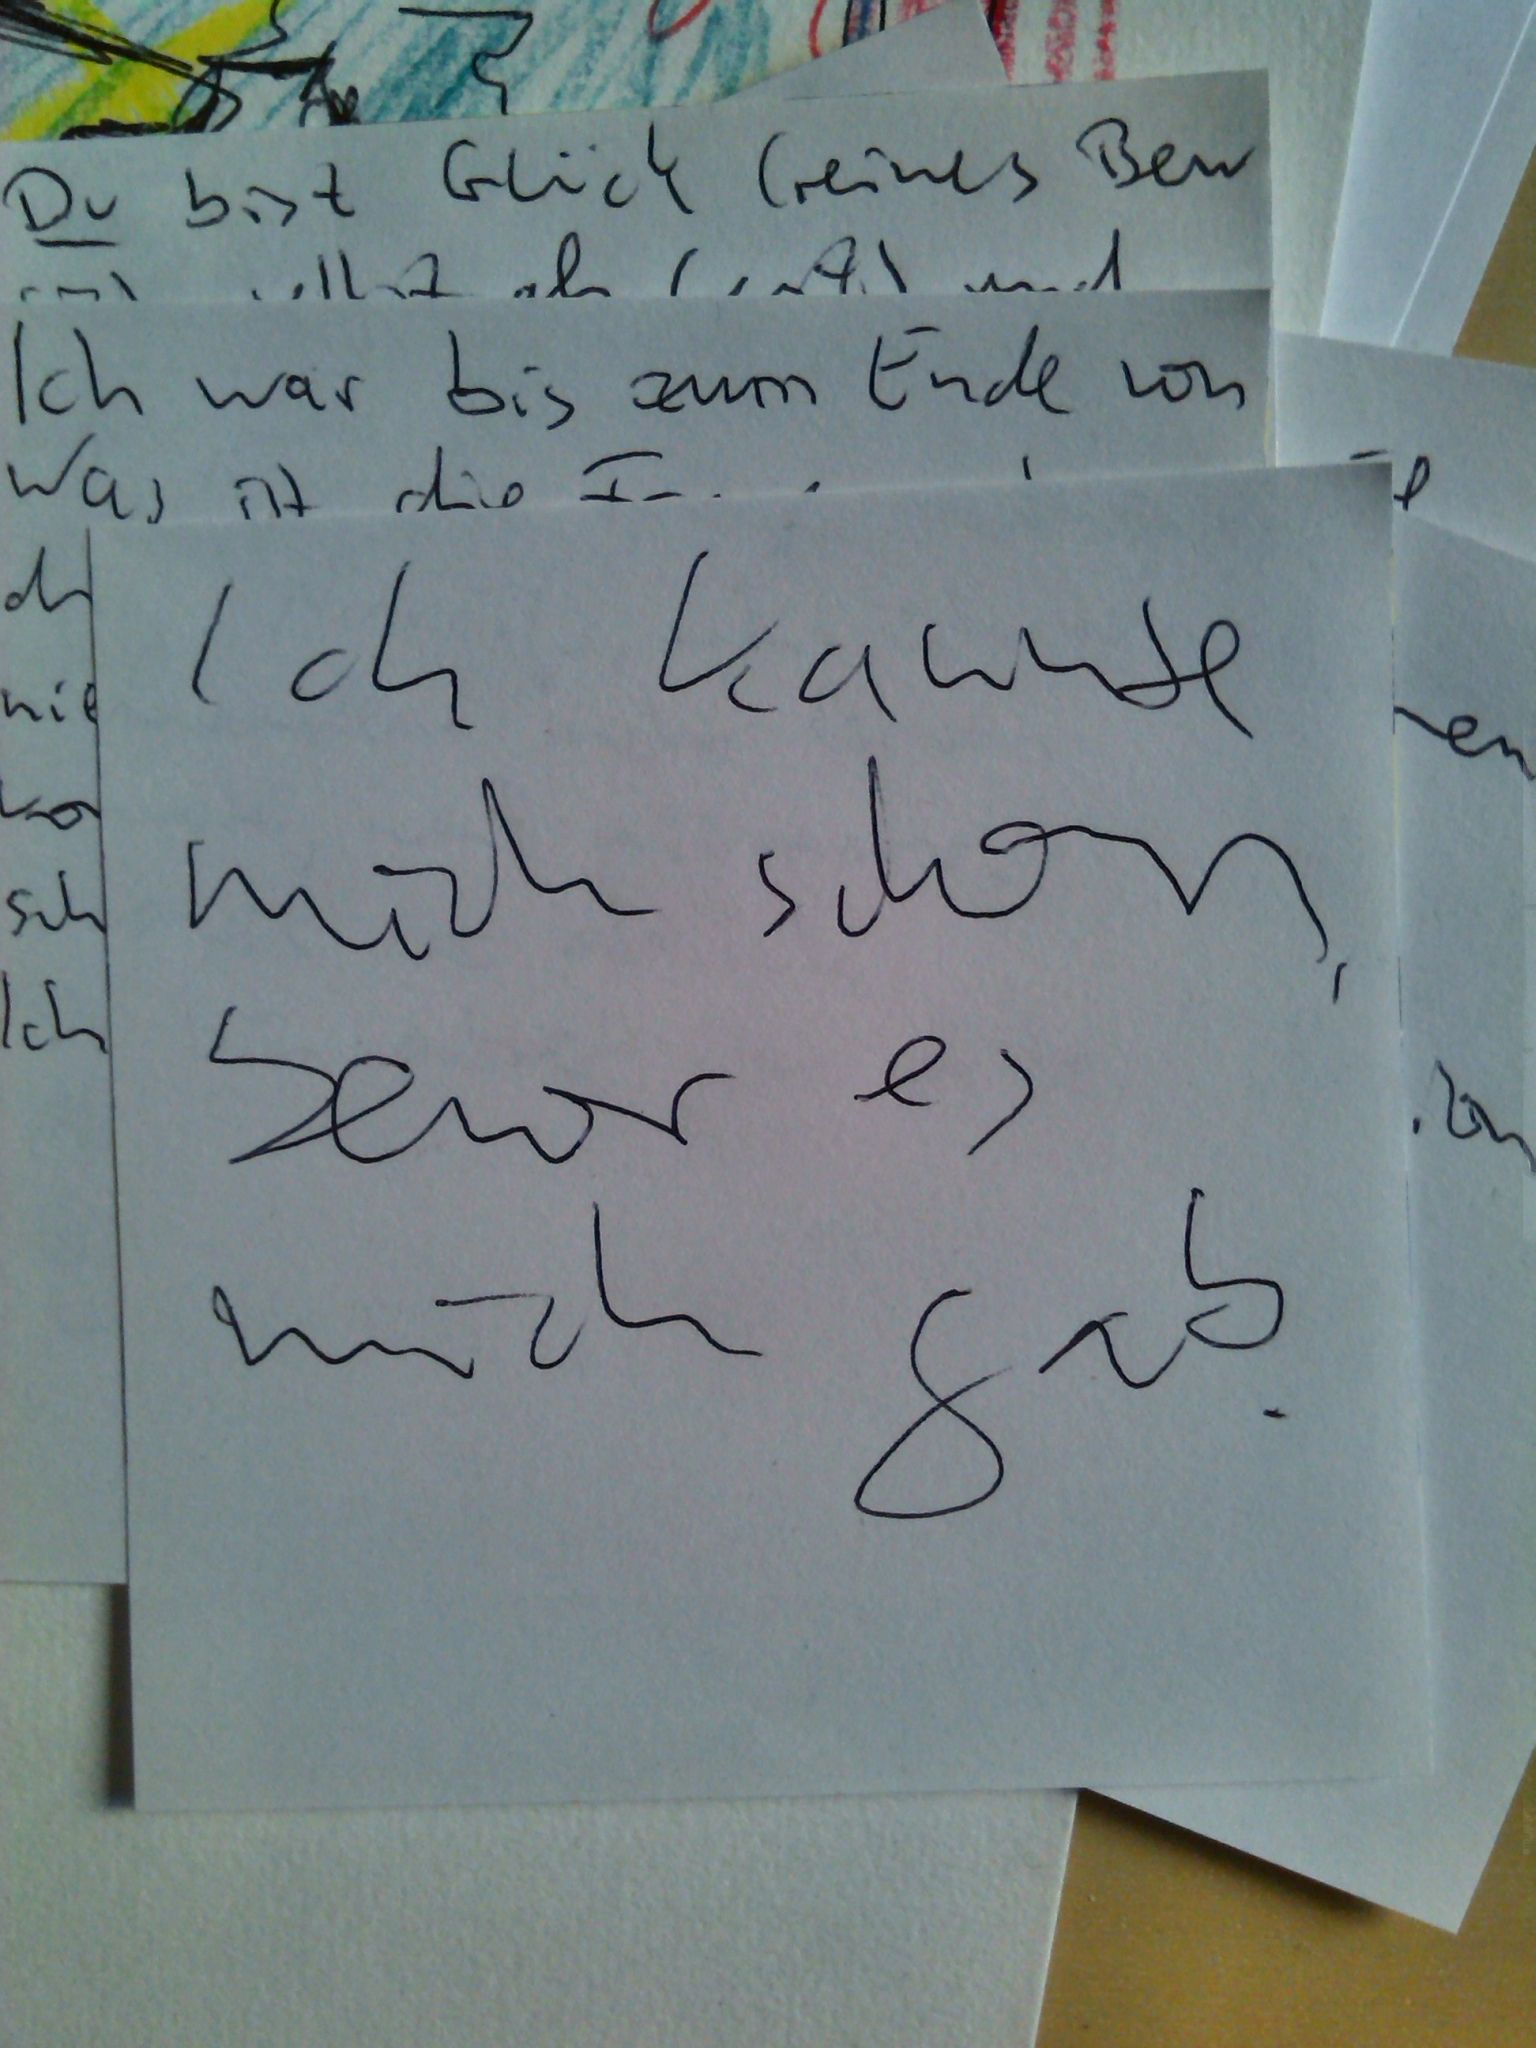 Du bist Glück (reines Bew
selbst und
Ich war bis zum Ende von
Was ist die
Ich kannte
mich schon,
bevor es
mich gab.
nie
sch
Ich